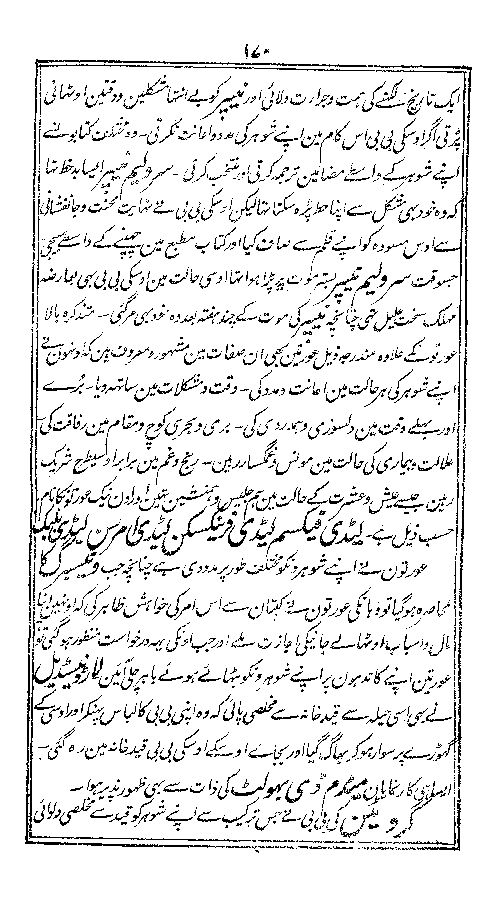 ۱۷۰
ایک تاریخ لکھنے کی ہمت وجرارت دلائی اور نیپیر کو بے انتہا مشکلین ودقتین اوٹھانی
پڑتی اگر اوسکی بی بی اس کام مین اپنے شوہر کی مدد واعانت نکرتی ۔ وہ مختلف کتابو نسے
اپنے شوہر کے واسطے مضامین ترجمہ کرتی اور منتخب کرتی ۔ سرولیم نیپیر ایسا بدخط تھا
کہ وہ خود بھی مشکل سے اپنا خط پڑہ سکتا تھا لیکن اوسکی بی بی نے نہایت محنت وجانفشانی
سے اوس مسودہ کو اپنے قلم سے صاف کیا اور کتاب مطبع مین چھپنے کے واسطے بھیجی
جسوقت سرولیم نیپیر بستر موت پر پڑا ہوا تھا اوسی حالت مین اوسکی بی بی بھی بعارضہ
مہلک سخت علیل تھی چنانچہ نیپیر کی موت کے چند ہفتہ بعد وہ خود بھی مرگئی ۔ متذکرہ بالا
عورتون کے علاوہ مندرجہ ذیل عورتین بھی ان صفات مین مشہور ومعروف ہین کہ اونہون نے
اپنے شوہر کی ہر حالت مین اعانت ومدد کی ۔ دقت ومشکلات مین ساتھہ دیا ۔ بُرے
اور بھلے وقت مین دلسوزی وہمدردی کی ۔ بری وبحری کوچ ومقام مین رفاقت کی
علالت وبیماری کی حالت مین مونس وغمگسار رہین ۔ رنج وغم مین برابر اوسیطرح شریک
رہین جیسے عیش وعشرت کے حالت مین ہم جلیس وہمنشین تھین اور اون نیک عورتو نکا نام
حسب ذیل ہے ۔ لیڈی فیکسم لیڈی فرنکسکن لیڈی امرسن لیڈی بلیک
عورتون نے اپنے شوہرونکو مختلف طور پر مدد دی ہے چنانچہ جب
محاصرہ ہوگیا تو وہانکی عورتون نے کپتان سے اس امر کی خواہش ظاہر کی کہ اونہین اپنا
مال واسباب اوٹھا لے جانیکی اجازت ملے اور جب اونکی یہہ درخواست منظور ہوگئی تو
عورتین اپنے کاندہون پر اپنے شوہرونکو بٹھائے ہوئے باہر چلی آئین
نے بھی اسی حیلہ سے قید خانہ سے مخلصی پائی کہ وہ اپنی بی بی کا لباس پہنکر اور اوسکے
گھوڑے پر سوار ہوکر بھاگ گیا اور بجائے اوسکے اوسکی بی بی قید خانہ مین رہ گئی ۔
ایسا ہی کار نمایان میڈم ڈی بہولٹ کی ذات سے بھی ظہور پذیر ہوا ۔
گروٹیس کی بی بی نے جس ترکیب سے اپنے شوہر کو قید سے مخلصی دلائی